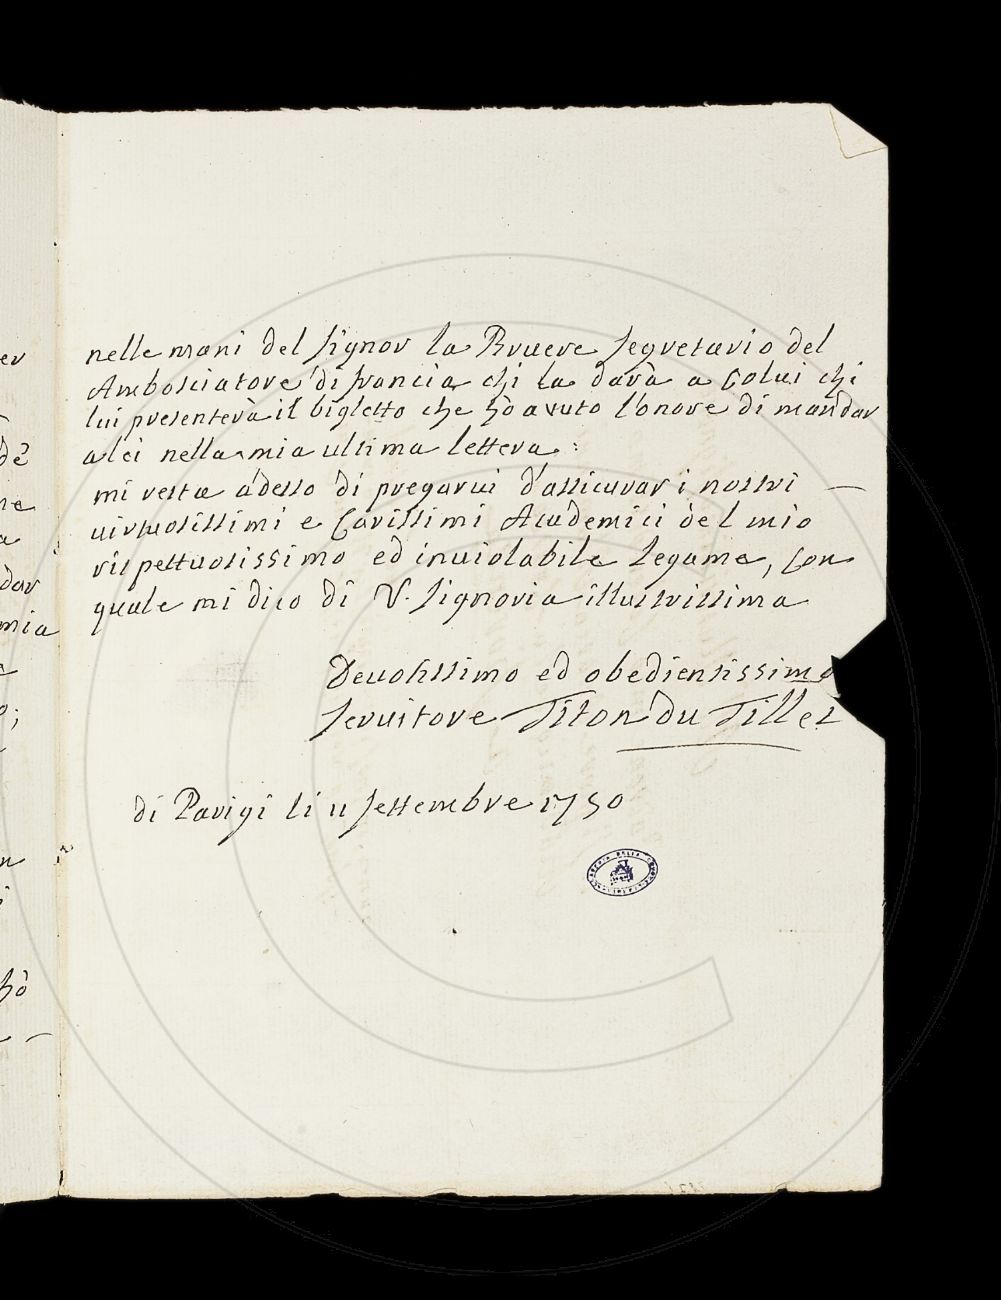 nelle mani del signor la Bruere segretario del
Ambosciatore di francia chi la darà a Colui chi
lui presenterà il biglietto che hò avuto l'onore di mandar
a lei nella mia ultima lettera:
mi resta adesso di pregarui d'assicurar i nostri
uirtuosissimi e Carissimi Academici del mio
rispettuosissimo ed inuiolabile legame, con
quale mi dico di V. signoria illustrissima
Deuotissimo ed obedientissimo
seruitore Titon du Tillet
di Parigi li 11 settembre 1750
er
dè
ne
a
dar
mia
o;
n
i
hò